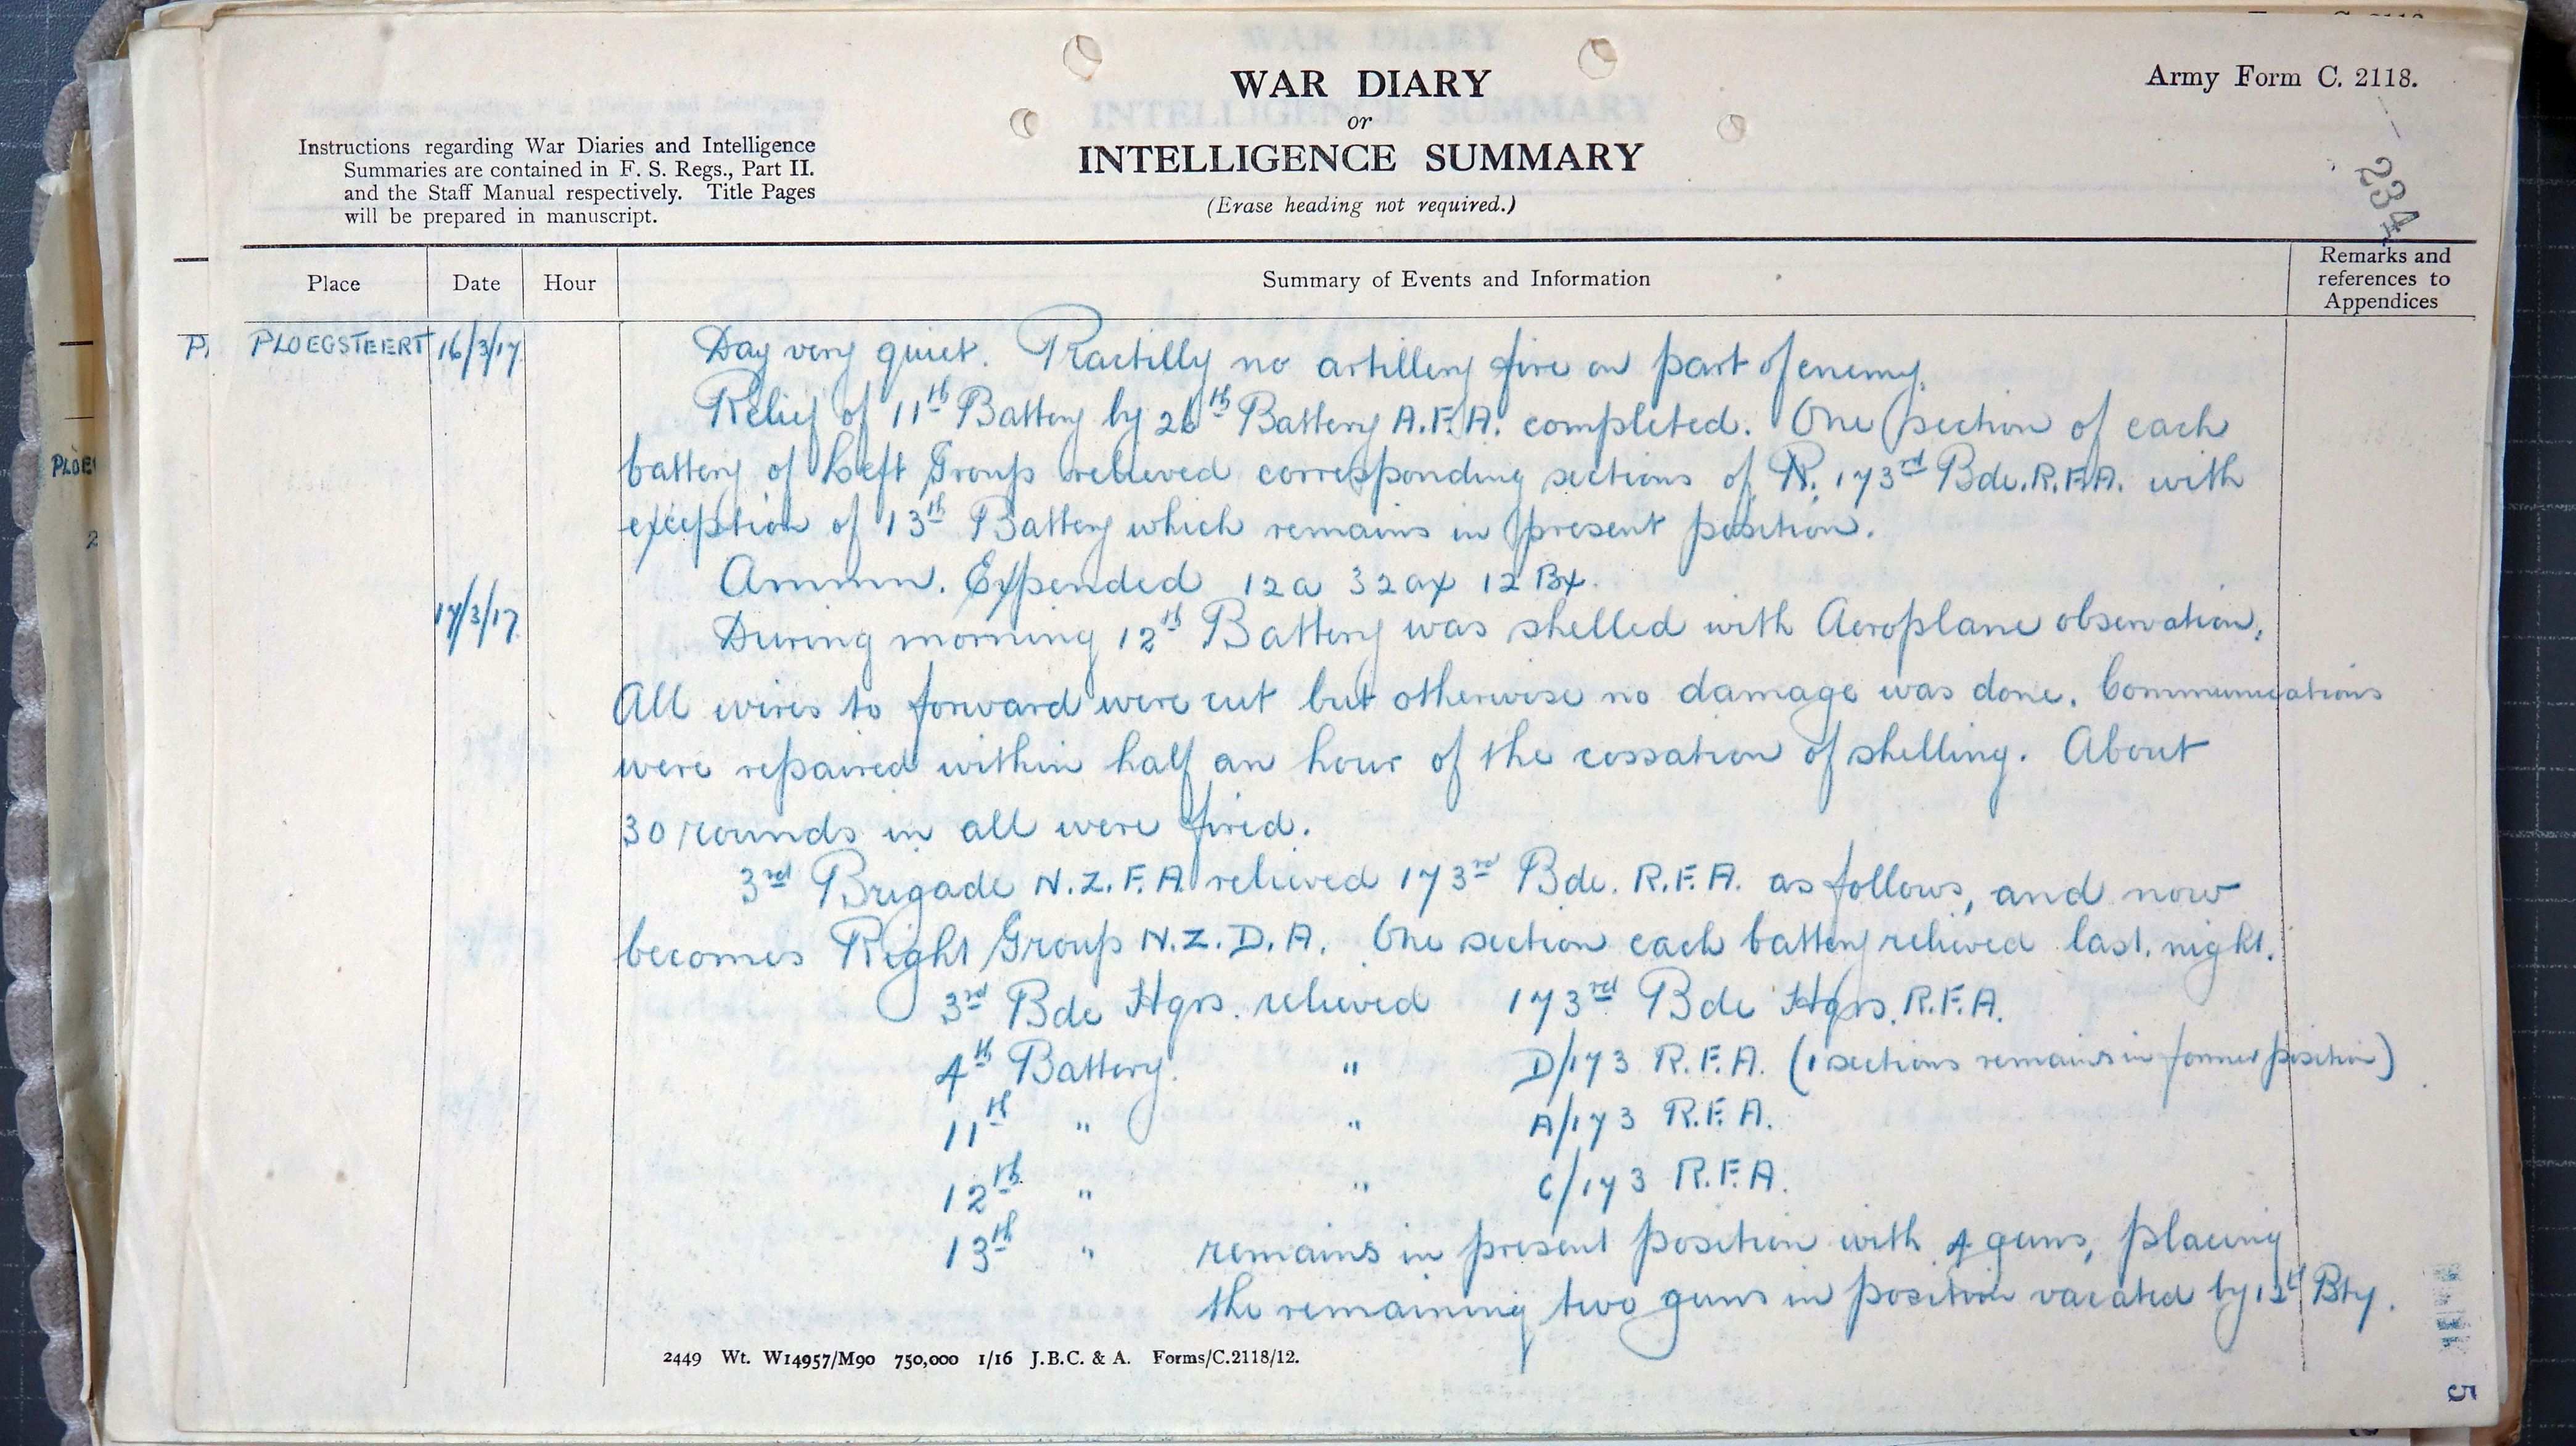 Army Form C. 2118.
WAR DIARY
or
INTELLIGENCE SUMMARY
(Erase heading not required.)
Instructions regarding War Diaries and Intelligence
Summaries are contained in F. S. Regs., Part II.
and the Staff Manual respectively. Title Pages
will be prepared in manuscript.
234
Place Date Hour Summary of Events and Information Remarks and
references to
Appendices
PLOEGSTEERT 16/3/17 Day very quiet. Practilly no artillery fire on part of enemy.
Relief of 11th Battery by 26th Battery A.F.A. completed. One section of each
battery of Left Group relieved corresponding sections of 173rd Bde. R.F.A. with
exception of 13th Battery which remains in present position.
Ammn. Expended 12a 32ax 12Bx.
17/3/17 During morning 12th Battery was shelled with Aeroplane observation.
All wires to forward were cut but otherwise no damage was done. Communications
were repaired within half an hour of the cossation of shelling. About
30 rounds in all were fired.
3rd Brigade N.Z.F.A. relieved 173rd Bde. R.F.A. as follows, and now
becomes Right Group N.Z.D.A. One section each battery relieved last night.
3rd Bde Hqrs. relieved 173rd Bde Hqrs. R.F.A.
4th Battery. " D/173 R.F.A. (1 sections remains in former position)
11th " " A/173 R.F.A.
12th " " C/173 R.F.A.
13th " remains in present position with 4 guns, placing
the remaining two guns in position vacated by 12th Bty.
2449 Wt. W14957/M90 750,000 1/16 J.B.C. & A. Forms/C.2118/12.
5